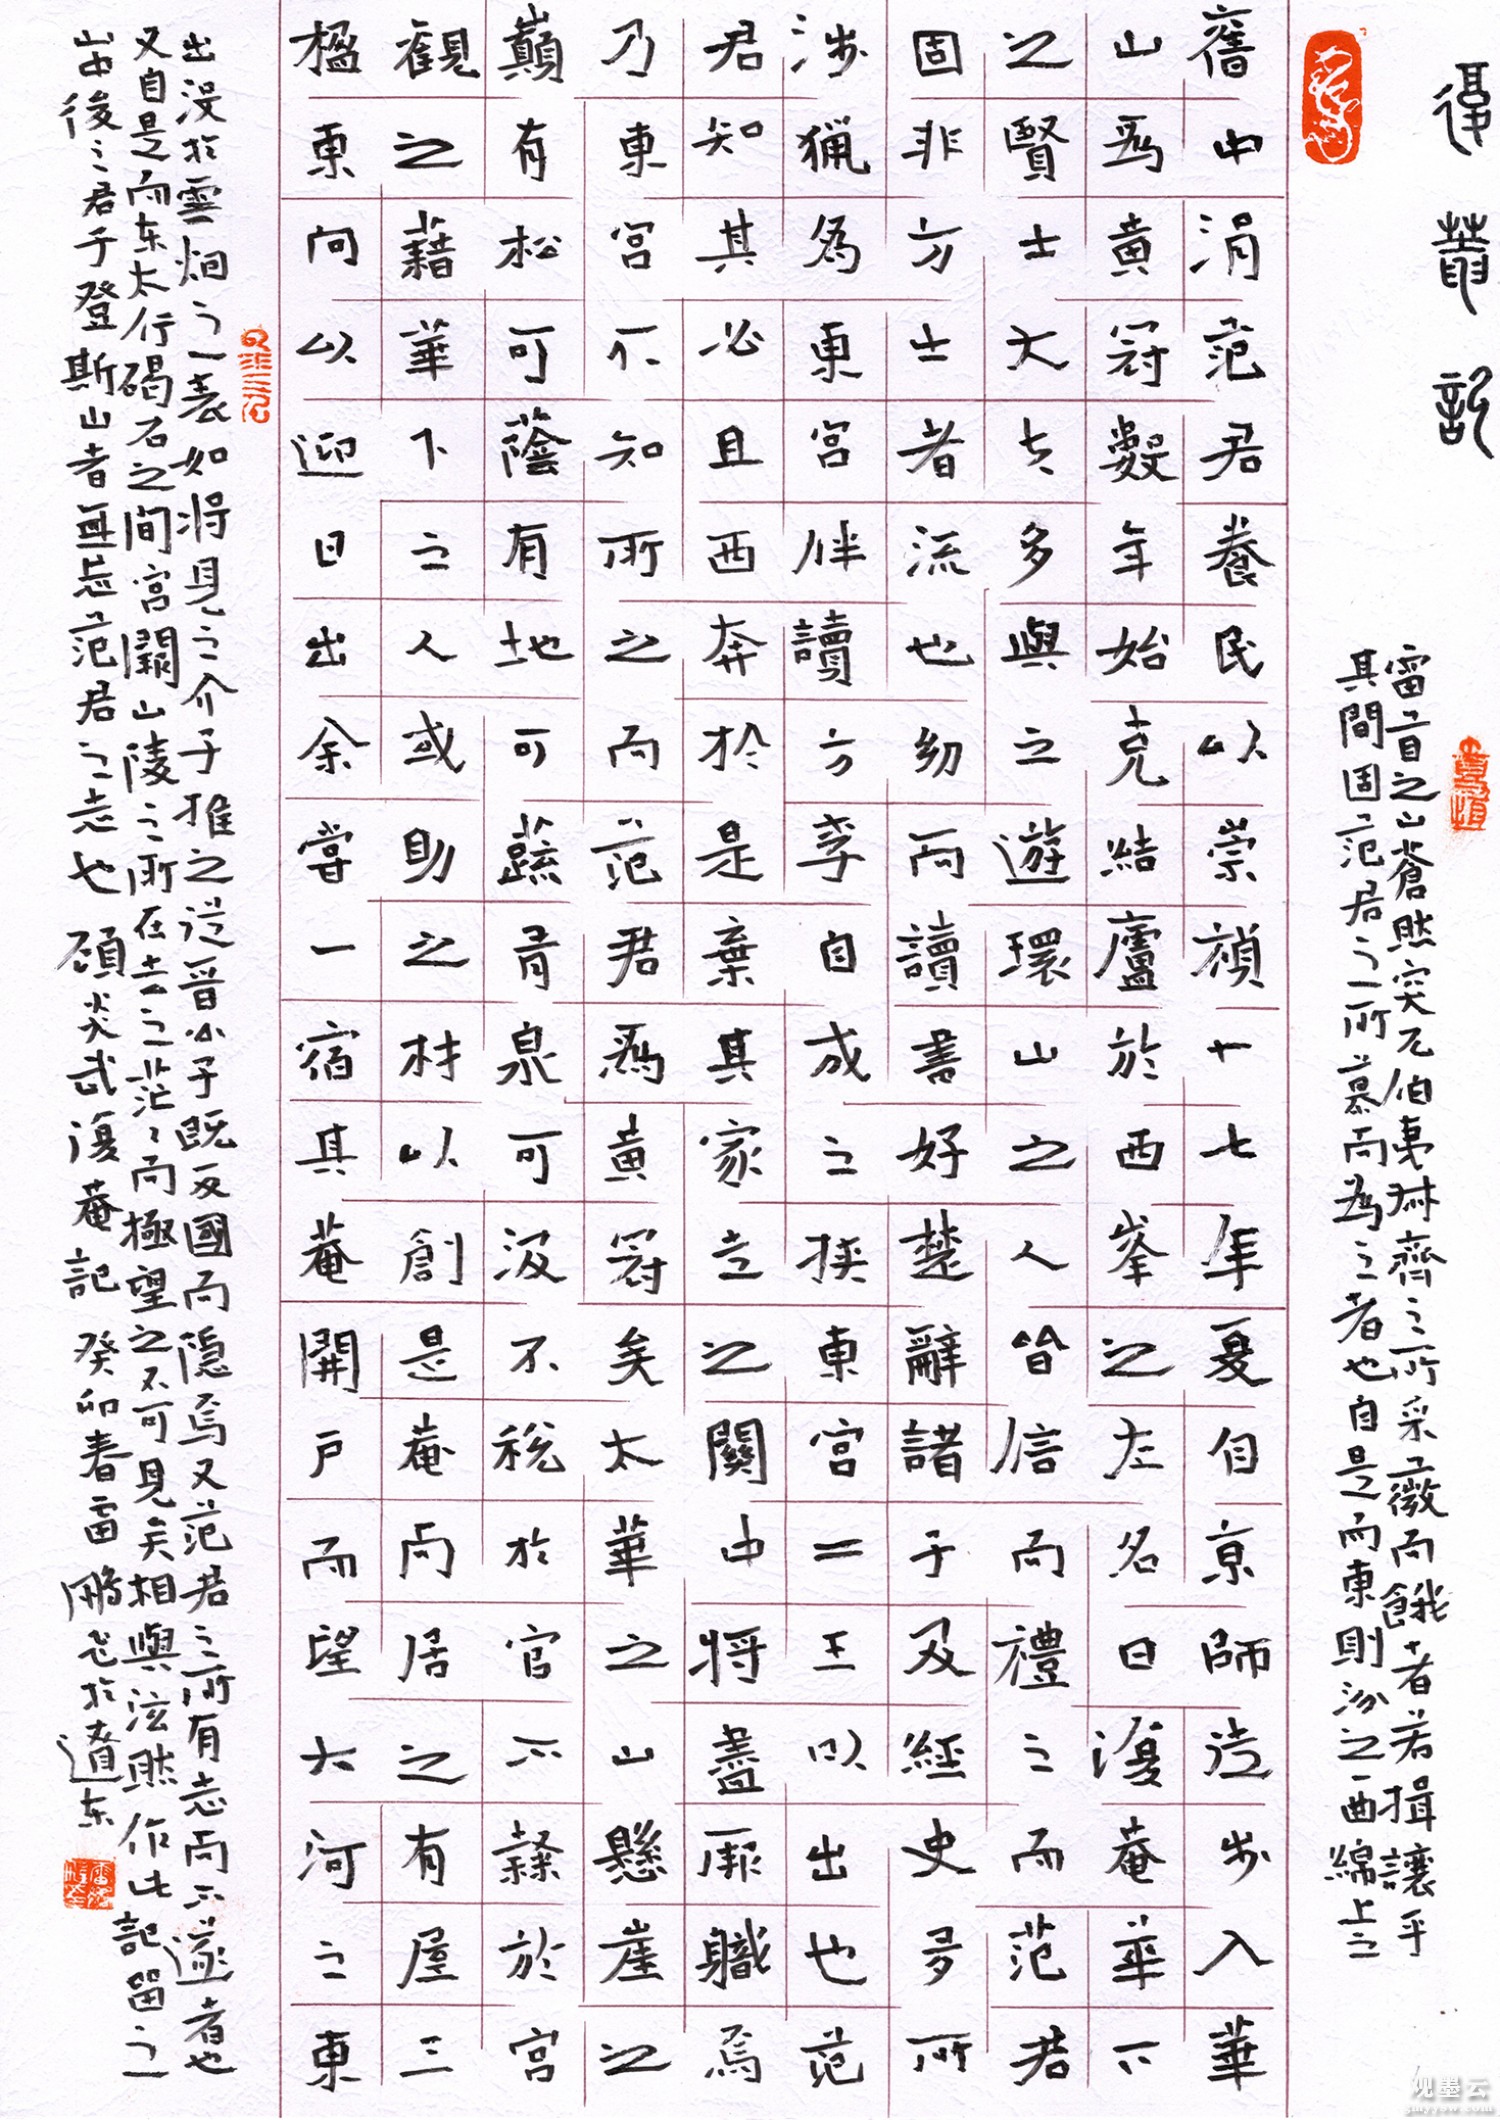 復菴記
舊中涓范君養民以崇禎十七年夏自京師徒步入華
山爲黃冠數年始克結廬於西峯之左名曰復菴華下
之賢士大夫多與之遊環山之人皆信而禮之而范君
固非方士者流也幼而讀書好楚辭諸子及經史多所
涉獵爲東宮伴讀方李自成之挾東宮二王以出也范
君知其必且西奔於是棄其家走之關中將盡厥職焉
乃東宮不知所之而范君爲黃冠矣太華之山懸崖之
巔有松可蔭有地可蔬有泉可汲不稅於官不隸於宮
觀之藉華下之人或助之材以創是菴而居之有屋三
楹東向以迎日出余嘗一宿其菴開戶而望大河之東
雷首之山蒼然突兀伯夷叔齊之所采薇而餓者若揖讓乎
其間固范君之所慕而爲之者也自是而東則汾之西綿上之
出没於雲烟之表如將見之介子推之從晉公子既反國而隱焉又范君之所有志而不遂者也
又自是而东太行碣石之間宮闕山陵之所在去之茫茫而極望之不可見矣相與泫然作此記留之
山中後之君子登斯山者無忘范君之志也 顧炎武復菴記 癸卯春雷鵬飞於遼东
观墨云